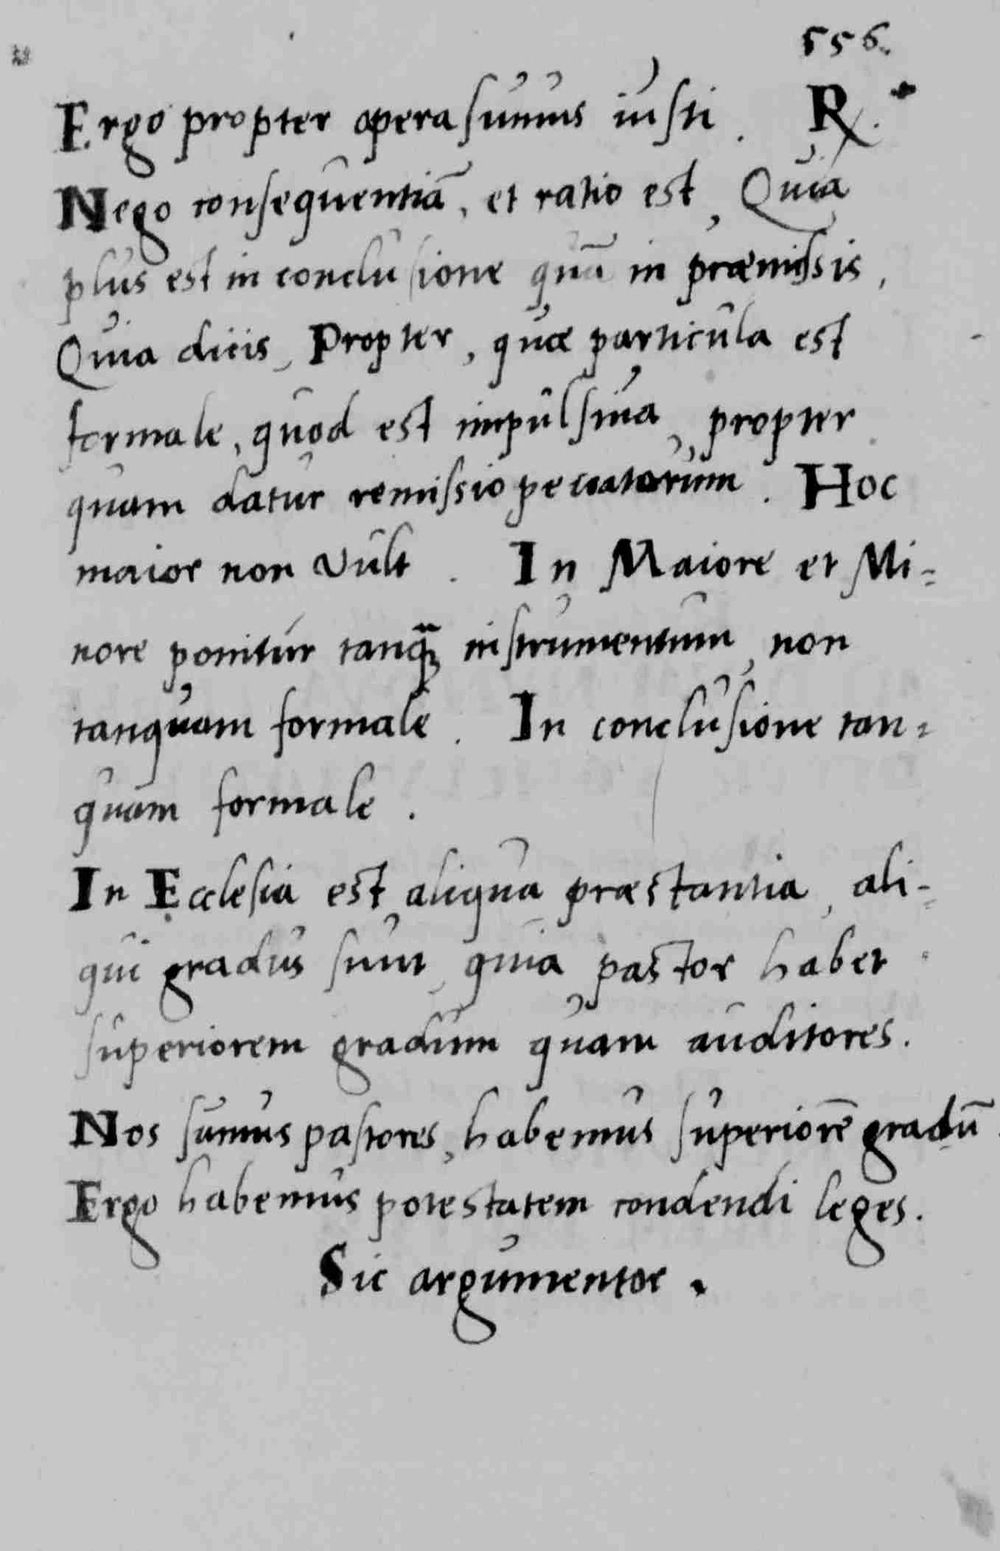 556.
Ergo propter opera sumus iusti. R.
Nego consequentiā, et ratio est, Quia
plus est in conclusione quā in præmissis,
Quia dicis, Propter, quæ particula est
formale, quod est impulsiua, propter
quam datur remissio peccatorum. Hoc
maior non vult. In Maiore et Mi-
nore ponitur tanq̃ꝫ instrumentum, non
tanquam formale. In conclusione tan-
quam formale.
In Ecclesia est aliqua præstantia, ali-
qui gradus sunt, quia pastor habet
superiorem gradum quam auditores.
Nos sumus pastores, habemus superiorē gradū.
Ergo habemus potestatem condendi leges.
Sic argumentor.